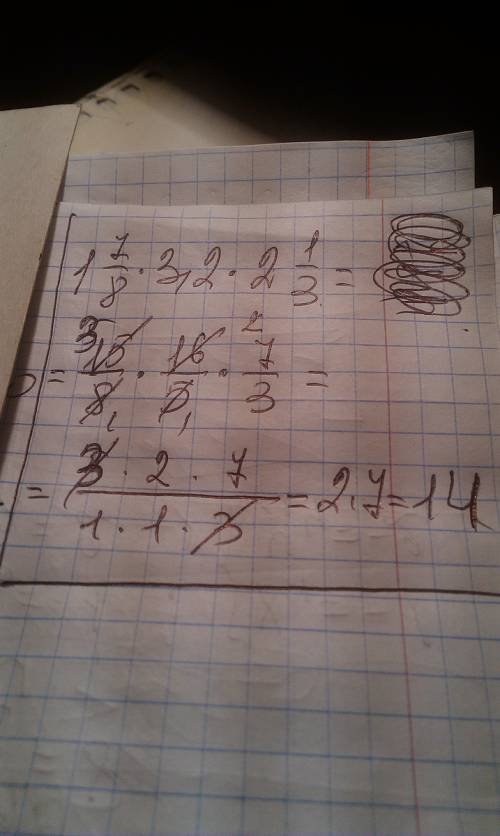 1 7/8 · 3,2 · 2 1/3 =
= 15/8 · 16/5 · 7/3 =
= 3 · 2 · 7 / 1 · 1 · 3 = 2 · 7 = 14